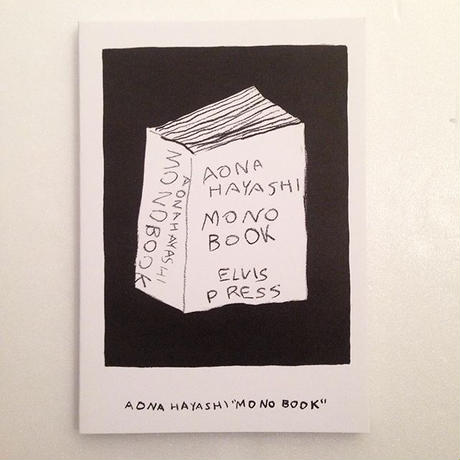 AONA HAYASHI
MONOBOOK
AONA
HAYASHI
MONO
BOOK
ELVIS
PRESS
AONA HAYASHI "MONO BOOK"